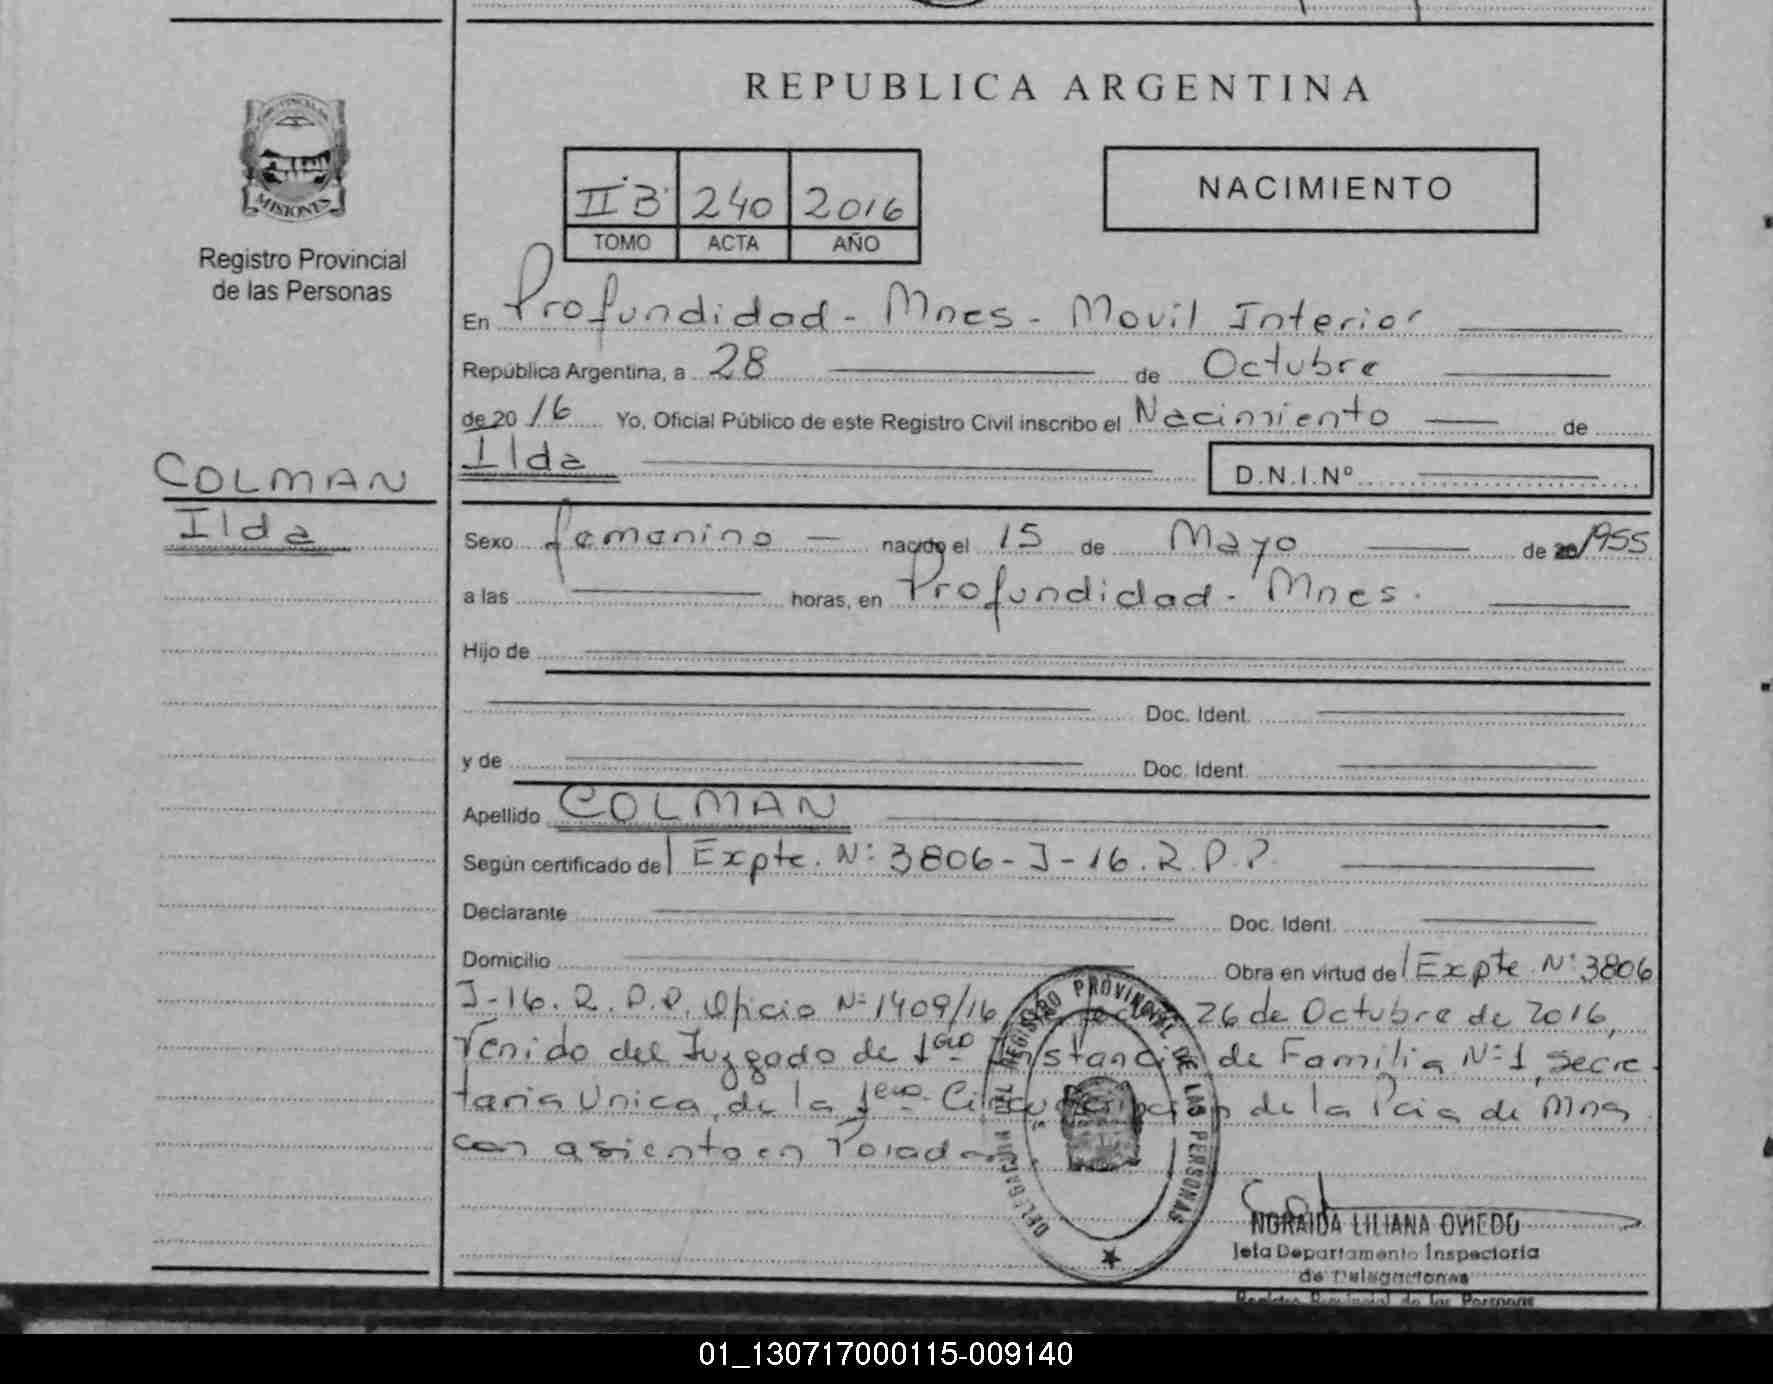 REPUBLICA ARGENTINA
PROVINCIA
MISIONES
Registro Provincial
de las Personas
II B 240 2016
TOMO ACTA AÑO
NACIMIENTO
En Profundidad - Mnes - Movil Interior
República Argentina, a 28 de Octubre
de 20 16 Yo, Oficial Público de este Registro Civil inscribo el Nacimiento de
Ilda D.N.I.Nº
COLMAN
Ilda
Sexo femenino nacido el 15 de Mayo de 1955
a las horas, en Profundidad - Mnes.
Hijo de
Doc. Ident.
y de Doc. Ident.
Apellido COLMAN
Según certificado de Expte. Nº 3806-J-16. R.P.P.
Declarante Doc. Ident.
Domicilio Obra en virtud de Expte. Nº 3806
J-16. R.P.P. Oficio Nº 1409/16 26 de Octubre de 2016,
Venido del Juzgado de 1era Instancia de Familia Nº 1, Secre-
taria Unica, de la 1era Circunscripcion de la Pcia de Mnes
con asiento en Posadas
DELEGACION DEL REGISTRO PROVINCIAL DE LAS PERSONAS
NORAIDA LILIANA OVIEDO
Jefa Departamento Inspectoria
de Delegaciones
Registro Provincial de las Personas
01_130717000115-009140